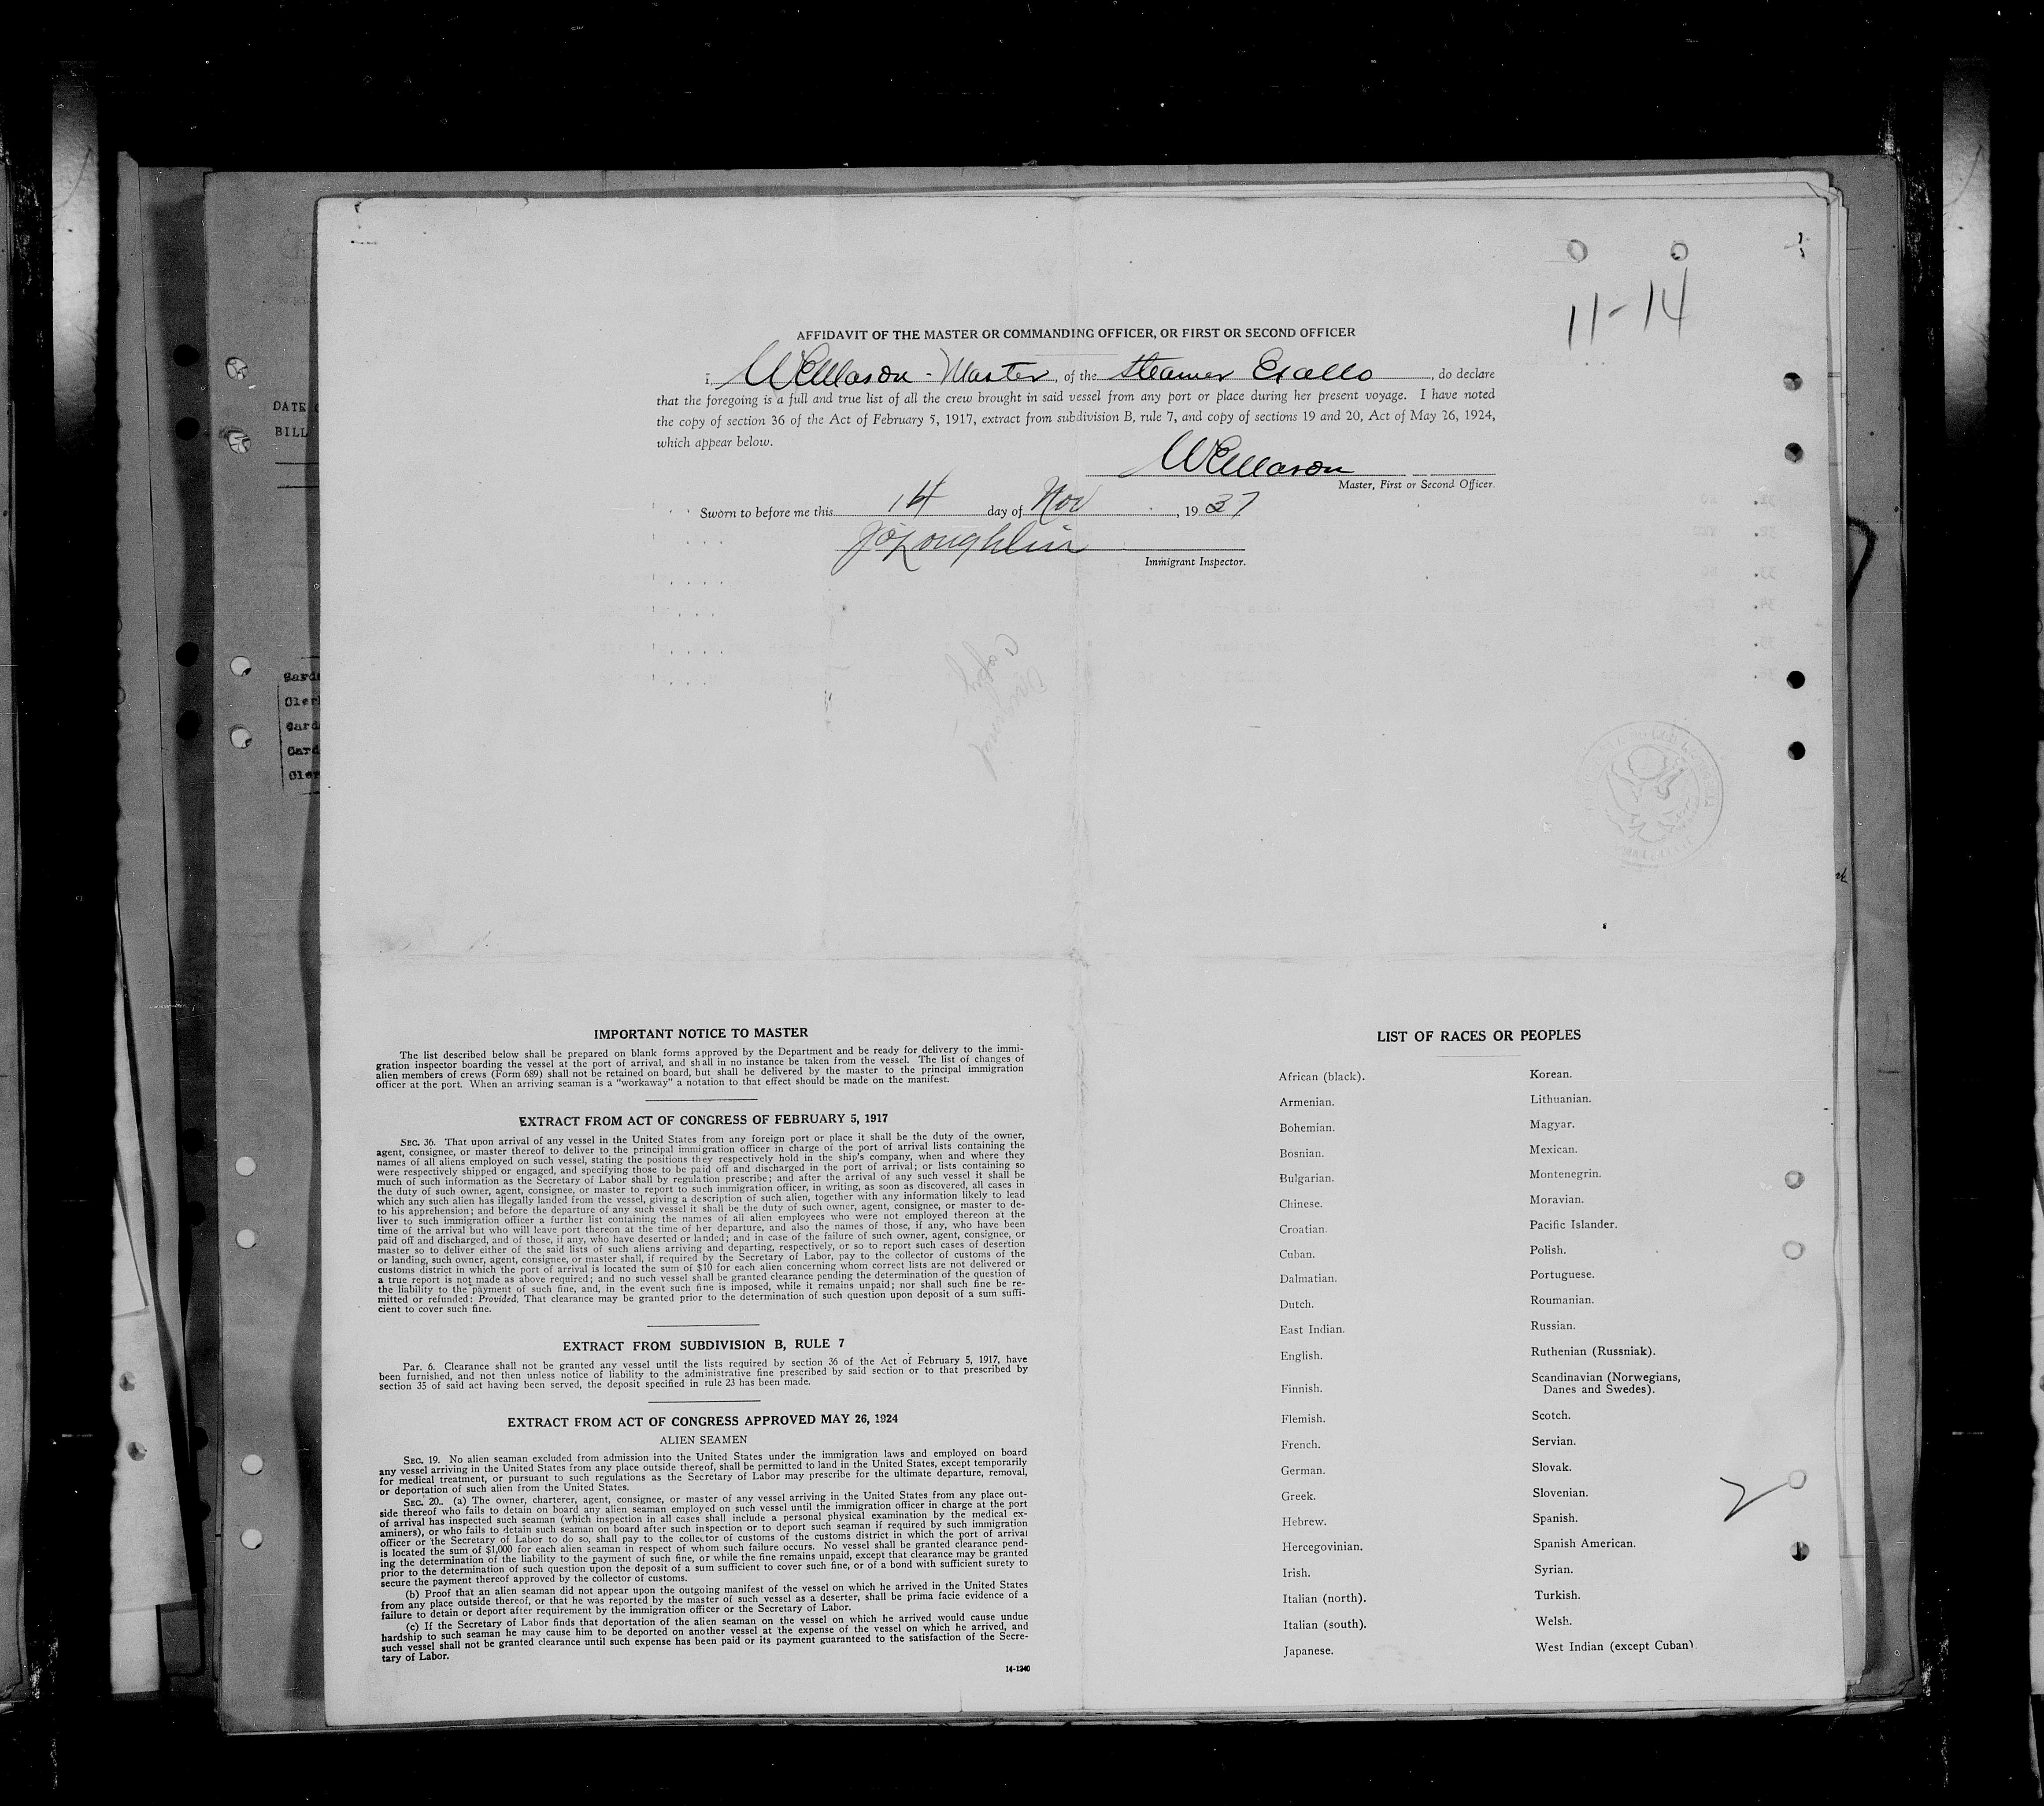 11-14
AFFIDAVIT OF THE MASTER OR COMMANDING OFFICER, OR FIRST OR SECOND OFFICER
I, WEMason - Master, of the Steamer Exello, do declare
that the foregoing is a full and true list of all the crew brought in said vessel from any port or place during her present voyage. I have noted
the copy of section 36 of the Act of February 5, 1917, extract from subdivision B, rule 7, and copy of sections 19 and 20, Act of May 26, 1924,
which appear below.
WEMason
Master, First or Second Officer.
Sworn to before me this 14 day of Nov, 1937
JO'Loughlin
Immigrant Inspector.
DATE
BILL
Gard
Cler
Gard
Gard
Cler
IMPORTANT NOTICE TO MASTER
The list described below shall be prepared on blank forms approved by the Department and be ready for delivery to the immi-
gration inspector boarding the vessel at the port of arrival, and shall in no instance be taken from the vessel. The list of changes of
alien members of crews (Form 689) shall not be retained on board, but shall be delivered by the master to the principal immigration
officer at the port. When an arriving seaman is a "workaway" a notation to that effect should be made on the manifest.
EXTRACT FROM ACT OF CONGRESS OF FEBRUARY 5, 1917
SEC. 36. That upon arrival of any vessel in the United States from any foreign port or place it shall be the duty of the owner,
agent, consignee, or master thereof to deliver to the principal immigration officer in charge of the port of arrival lists containing the
names of all aliens employed on such vessel, stating the positions they respectively hold in the ship's company, when and where they
were respectively shipped or engaged, and specifying those to be paid off and discharged in the port of arrival; or lists containing so
much of such information as the Secretary of Labor shall by regulation prescribe; and after the arrival of any such vessel it shall be
the duty of such owner, agent, consignee, or master to report to such immigration officer, in writing, as soon as discovered, all cases in
which any such alien has illegally landed from the vessel, giving a description of such alien, together with any information likely to lead
to his apprehension; and before the departure of any such vessel it shall be the duty of such owner, agent, consignee, or master to de-
liver to such immigration officer a further list containing the names of all alien employees who were not employed thereon at the
time of the arrival but who will leave port thereon at the time of her departure, and also the names of those, if any, who have been
paid off and discharged, and of those, if any, who have deserted or landed; and in case of the failure of such owner, agent, consignee, or
master so to deliver either of the said lists of such aliens arriving and departing, respectively, or so to report such cases of desertion
or landing, such owner, agent, consignee, or master shall, if required by the Secretary of Labor, pay to the collector of customs of the
customs district in which the port of arrival is located the sum of $10 for each alien concerning whom correct lists are not delivered or
a true report is not made as above required; and no such vessel shall be granted clearance pending the determination of the question of
the liability to the payment of such fine, and, in the event such fine is imposed, while it remains unpaid; nor shall such fine be re-
mitted or refunded: Provided, That clearance may be granted prior to the determination of such question upon deposit of a sum suffi-
cient to cover such fine.
EXTRACT FROM SUBDIVISION B, RULE 7
Par. 6. Clearance shall not be granted any vessel until the lists required by section 36 of the Act of February 5, 1917, have
been furnished, and not then unless notice of liability to the administrative fine prescribed by said section or to that prescribed by
section 35 of said act having been served, the deposit specified in rule 23 has been made.
EXTRACT FROM ACT OF CONGRESS APPROVED MAY 26, 1924
ALIEN SEAMEN
SEC. 19. No alien seaman excluded from admission into the United States under the immigration laws and employed on board
any vessel arriving in the United States from any place outside thereof, shall be permitted to land in the United States, except temporarily
for medical treatment, or pursuant to such regulations as the Secretary of Labor may prescribe for the ultimate departure, removal,
or deportation of such alien from the United States.
SEC. 20. (a) The owner, charterer, agent, consignee, or master of any vessel arriving in the United States from any place out-
side thereof who fails to detain on board any alien seaman employed on such vessel until the immigration officer in charge at the port
of arrival has inspected such seaman (which inspection in all cases shall include a personal physical examination by the medical ex-
aminers), or who fails to detain such seaman on board after such inspection or to deport such seaman if required by such immigration
officer or the Secretary of Labor to do so, shall pay to the collector of customs of the customs district in which the port of arrival
is located the sum of $1,000 for each alien seaman in respect of whom such failure occurs. No vessel shall be granted clearance pend-
ing the determination of the liability to the payment of such fine, or while the fine remains unpaid, except that clearance may be granted
prior to the determination of such question upon the deposit of a sum sufficient to cover such fine, or of a bond with sufficient surety to
secure the payment thereof approved by the collector of customs.
(b) Proof that an alien seaman did not appear upon the outgoing manifest of the vessel on which he arrived in the United States
from any place outside thereof, or that he was reported by the master of such vessel as a deserter, shall be prima facie evidence of a
failure to detain or deport after requirement by the immigration officer or the Secretary of Labor.
(c) If the Secretary of Labor finds that deportation of the alien seaman on the vessel on which he arrived would cause undue
hardship to such seaman he may cause him to be deported on another vessel at the expense of the vessel on which he arrived, and
such vessel shall not be granted clearance until such expense has been paid or its payment guaranteed to the satisfaction of the Secre-
tary of Labor.
14-1240
LIST OF RACES OR PEOPLES
African (black).
Armenian.
Bohemian.
Bosnian.
Bulgarian.
Chinese.
Croatian.
Cuban.
Dalmatian.
Dutch.
East Indian.
English.
Finnish.
Flemish.
French.
German.
Greek.
Hebrew.
Hercegovinian.
Irish.
Italian (north).
Italian (south).
Japanese.
Korean.
Lithuanian.
Magyar.
Mexican.
Montenegrin.
Moravian.
Pacific Islander.
Polish.
Portuguese.
Roumanian.
Russian.
Ruthenian (Russniak).
Scandinavian (Norwegians,
Danes and Swedes).
Scotch.
Servian.
Slovak.
Slovenian.
Spanish.
Spanish American.
Syrian.
Turkish.
Welsh.
West Indian (except Cuban).
2